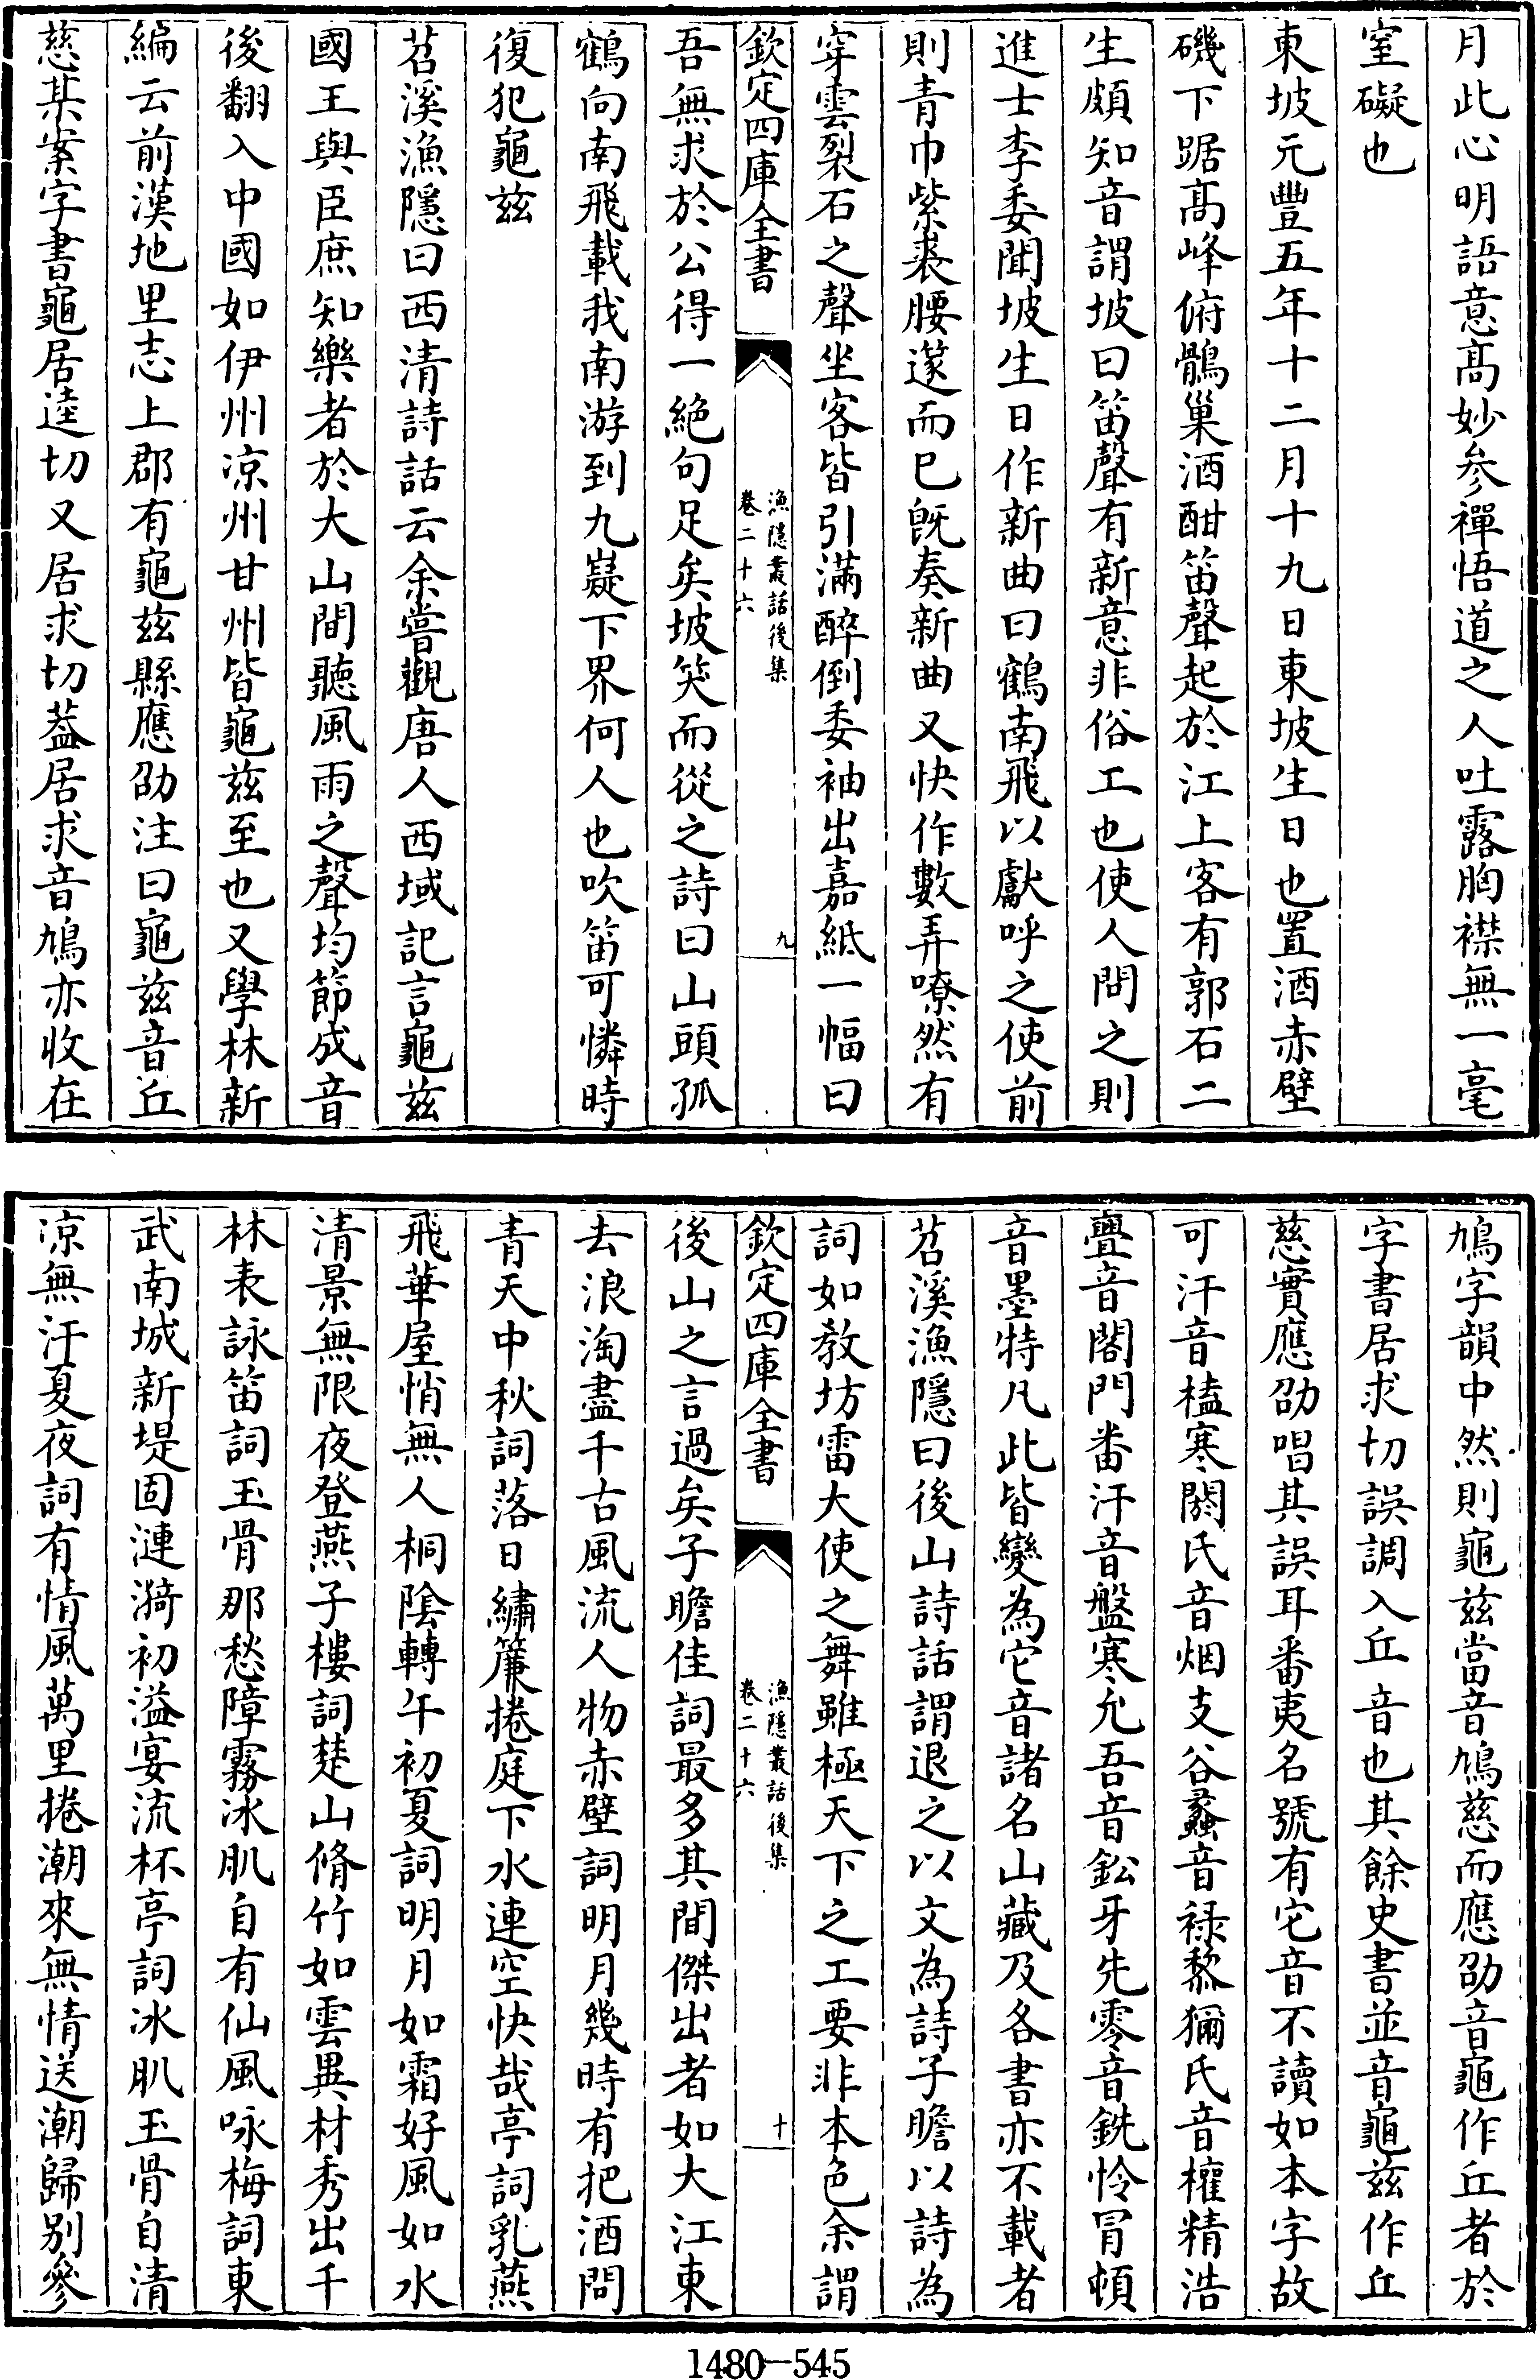 月此心明語意髙妙參禪悟道之人吐露胸襟無一毫
窒礙也
東坡元豐五年十二月十九日東坡生日也置酒赤壁
磯下踞髙峰俯鶻巢酒酣笛聲起於江上客有郭石二
生頗知音謂坡曰笛聲有新意非俗工也使人問之則
進士李委聞坡生日作新曲曰鶴南飛以獻呼之使前
則青巾紫裘腰篴而已旣奏新曲又快作數弄嘹然有
穿雲裂石之聲坐客皆引滿醉倒委袖出嘉紙一幅曰
欽定四庫全書
漁隱叢話後集
卷二十六
九
吾無求於公得一絶句足矣坡笑而從之詩曰山頭孤
鶴向南飛載我南游到九嶷下界何人也吹笛可憐時
復犯龜兹
苕溪漁隱曰西清詩話云余嘗觀唐人西域記言龜兹
國王與臣庶知樂者於大山間聽風雨之聲均節成音
後翻入中國如伊州凉州甘州皆龜兹至也又學林新
編云前漢地里志上郡有龜兹縣應劭注曰龜兹音丘
慈某案字書龜居逵切又居求切葢居求音鳩亦收在
鳩字韻中然則龜兹當音鳩慈而應劭音龜作丘者於
字書居求切誤調入丘音也其餘史書並音龜兹作丘
慈實應劭唱其誤耳番夷名號有它音不讀如本字故
可汗音榼寒閼氏音烟支谷蠡音禄黎獮氏音權精浩
亹音閤門番汗音盤寒允吾音鈆牙先零音銑怜冒頓
音墨特凡此皆變為它音諸名山藏及各書亦不載者
苕溪漁隱曰後山詩話謂退之以文為詩子瞻以詩為
詞如教坊雷大使之舞雖極天下之工要非本色余謂
欽定四庫全書
漁隱叢話後集
卷二十六
十
後山之言過矣子瞻佳詞最多其間傑出者如大江東
去浪淘盡千古風流人物赤壁詞明月幾時有把酒問
青天中秋詞落日繡簾捲庭下水連空快哉亭詞乳燕
飛華屋悄無人桐陰轉午初夏詞明月如霜好風如水
清景無限夜登燕子樓詞楚山脩竹如雲異材秀出千
林表詠笛詞玉骨那愁障霧冰肌自有仙風咏梅詞東
武南城新堤固漣漪初溢宴流杯亭詞冰肌玉骨自清
凉無汗夏夜詞有情風萬里捲潮來無情送潮歸别參
1480—545